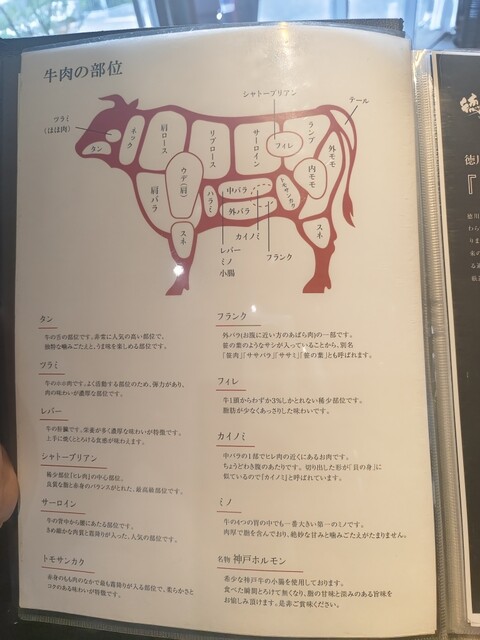 牛肉の部位
シャトーブリアン
テール
ツラミ
(ほほ肉)
タン
ネック
肩ロース
リブロース
サーロイン
ランプ
ヒレ
外モモ
内モモ
トモサンカク
ウデ(肩)
肩バラ
ハラミ
中バラ
外バラ
スネ
スネ
カイノミ
フランク
レバー
ミノ
小腸
タン
牛の舌の部位です。非常に人気の高い部位で、
独特な噛みごたえと、うま味を楽しめる部位です。
ツラミ
牛のホホ肉です。よく活動する部位のため、弾力があり、
肉の味わいが濃厚な部位です。
レバー
牛の肝臓です。栄養が多く濃厚な味わいが特徴です。
上手に焼くととろける食感が味わえます。
シャトーブリアン
極少部位『ヒレ肉』の中心部。
良質な脂と赤身のバランスがとれた、最高級部位です。
サーロイン
牛の背中から腰にあたる部位です。
きめ細かな肉質と霜降りが入った、人気の部位です。
トモサンカク
赤身のもも肉のなかで最も霜降りが入る部位で、柔らかさと
コクのある味わいが特徴です。
フランク
外バラ(お腹に近い方のあばら肉)の一部です。
笹の葉のようなサシが入っていることから、別名
「笹肉」「ササバラ」「ササミ」「笹の葉」とも呼ばれます。
フィレ
牛1頭からわずか3%しかとれない極少部位です。
脂肪が少なくあっさりした味わいです。
カイノミ
中バラの1部でヒレ肉の近くにあるお肉です。
ちょうどわき腹のあたりです。切り出した形が「貝の身」に
似ているので『カイノミ』と呼ばれています。
ミノ
牛の4つの胃の中でも一番大きい第一のミノです。
肉厚で脂を含んでおり、絶妙な甘みと噛みごたえがたまりません。
名物 神戸ホルモン
希少な神戸牛の小腸を使用しております。
食べた瞬間とろけて無くなり、脂の甘味と深みのある旨味を
お愉しみ頂けます。是非ご賞味ください。